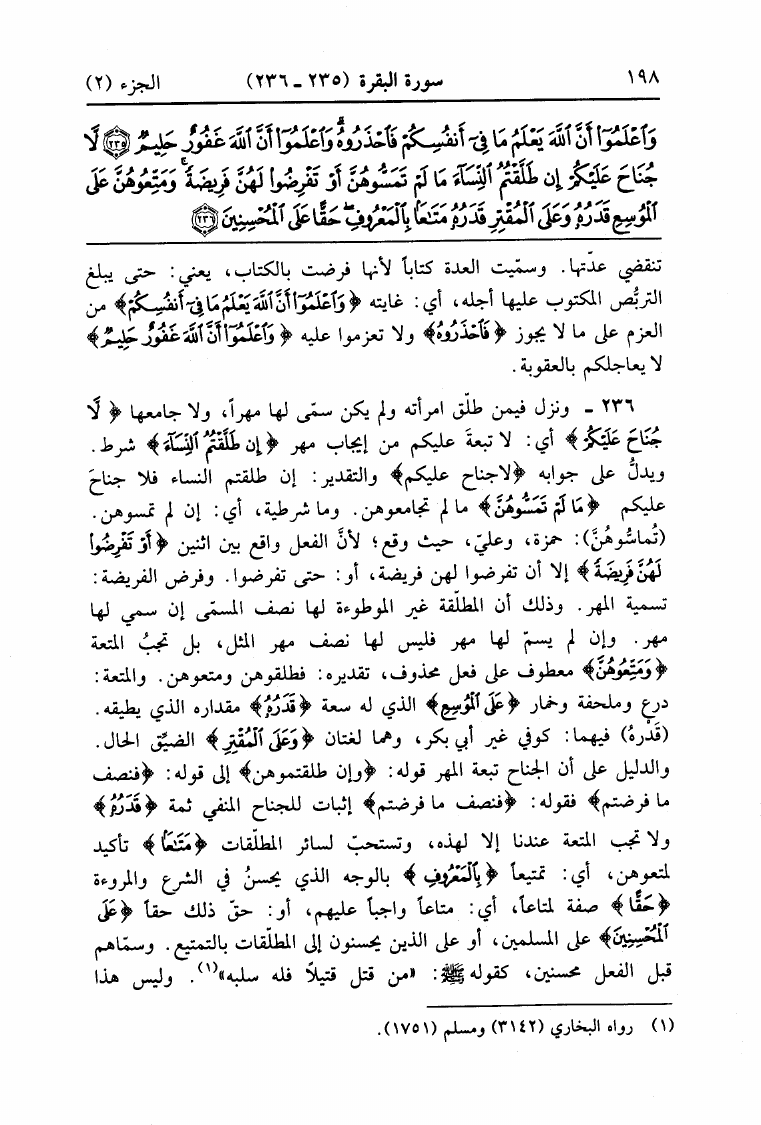 ١٩٨ سورة البقرة (٢٣٥ ـ ٢٣٦) الجزء (٢)
وَٱعْلَمُوٓا۟ أَنَّ ٱللَّهَ يَعْلَمُ مَا فِىٓ أَنفُسِكُمْ فَٱحْذَرُوهُ ۚ وَٱعْلَمُوٓا۟ أَنَّ ٱللَّهَ غَفُورٌ حَلِيمٌ ﴿٢٣٥﴾ لَّا
جُنَاحَ عَلَيْكُمْ إِن طَلَّقْتُمُ ٱلنِّسَآءَ مَا لَمْ تَمَسُّوهُنَّ أَوْ تَفْرِضُوا۟ لَهُنَّ فَرِيضَةً ۚ وَمَتِّعُوهُنَّ عَلَى
ٱلْمُوسِعِ قَدَرُهُۥ وَعَلَى ٱلْمُقْتِرِ قَدَرُهُۥ مَتَـٰعًۢا بِٱلْمَعْرُوفِ ۖ حَقًّا عَلَى ٱلْمُحْسِنِينَ ﴿٢٣٦﴾
تنقضي عدّتها. وسمّيت العدة كتاباً لأنها فرضت بالكتاب، يعني: حتى يبلغ
التربُّص المكتوب عليها أجله، أي: غايته ﴿وَٱعْلَمُوٓا۟ أَنَّ ٱللَّهَ يَعْلَمُ مَا فِىٓ أَنفُسِكُمْ﴾ من
العزم على ما لا يجوز ﴿فَٱحْذَرُوهُ﴾ ولا تعزموا عليه ﴿وَٱعْلَمُوٓا۟ أَنَّ ٱللَّهَ غَفُورٌ حَلِيمٌ﴾
لا يعاجلكم بالعقوبة.
٢٣٦ ـ ونزل فيمن طلّق امرأته ولم يكن سمّى لها مهراً، ولا جامعها ﴿لَّا
جُنَاحَ عَلَيْكُمْ﴾ أي: لا تبعةَ عليكم من إيجاب مهر ﴿إِن طَلَّقْتُمُ ٱلنِّسَآءَ﴾ شرط.
ويدلُّ على جوابه ﴿لاجناح عليكم﴾ والتقدير: إن طلقتم النساء فلا جناحَ
عليكم ﴿مَا لَمْ تَمَسُّوهُنَّ﴾ ما لم تجامعوهن. وما شرطية، أي: إن لم تمسوهن.
(تُماسُّوهُنَّ): حمزة، وعليّ، حيث وقع؛ لأنَّ الفعل واقع بين اثنين ﴿أَوْ تَفْرِضُوا۟
لَهُنَّ فَرِيضَةً﴾ إلا أن تفرضوا لهن فريضة، أو: حتى تفرضوا. وفرض الفريضة:
تسمية المهر. وذلك أن المطلّقة غير الموطوءة لها نصف المسمّى إن سمي لها
مهر. وإن لم يسمّ لها مهر فليس لها نصف مهر المثل، بل تجبُ المتعة
﴿وَمَتِّعُوهُنَّ﴾ معطوف على فعل محذوف، تقديره: فطلقوهن ومتعوهن. والمتعة:
درع وملحفة وخمار ﴿عَلَى ٱلْمُوسِعِ﴾ الذي له سعة ﴿قَدَرُهُۥ﴾ مقداره الذي يطيقه.
(قَدْرهُ) فيهما: كوفي غير أبي بكر، وهما لغتان ﴿وَعَلَى ٱلْمُقْتِرِ﴾ الضيّق الحال.
والدليل على أن الجناح تبعة المهر قوله: ﴿وإن طلقتموهن﴾ إلى قوله: ﴿فنصف
ما فرضتم﴾ فقوله: ﴿فنصف ما فرضتم﴾ إثبات للجناح المنفي ثمة ﴿قَدَرُهُۥ﴾
ولا تجب المتعة عندنا إلا لهذه، وتستحبّ لسائر المطلّقات ﴿مَتَـٰعًۢا﴾ تأكيد
لمتعوهن، أي: تمتيعاً ﴿بِٱلْمَعْرُوفِ﴾ بالوجه الذي يحسنُ في الشرع والمروءة
﴿حَقًّا﴾ صفة لمتاعاً، أي: متاعاً واجباً عليهم، أو: حقّ ذلك حقاً ﴿عَلَى
ٱلْمُحْسِنِينَ﴾ على المسلمين، أو على الذين يحسنون إلى المطلّقات بالتمتيع. وسمّاهم
قبل الفعل محسنين، كقوله ﷺ: «من قتل قتيلاً فله سلبه»(١). وليس هذا
(١) رواه البخاري (٣١٤٢) ومسلم (١٧٥١).